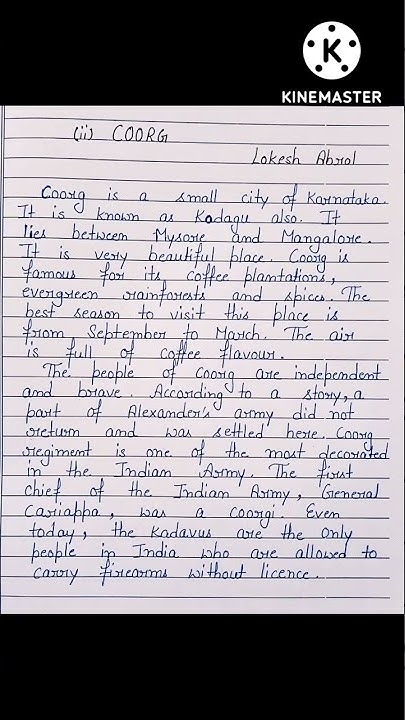 KINEMASTER
(ii) COORG
Lokesh Abrol
Coorg is a small city of Karnataka.
It is known as Kodagu also. It
lies between Mysore and Mangalore.
It is very beautiful place. Coorg is
famous for its coffee plantations,
evergreen rainforests and spices. The
best season to visit this place is
from September to March. The air
is full of coffee flavour.
The people of Coorg are independent
and brave. According to a story, a
part of Alexander's army did not
return and was settled here. Coorg
regiment is one of the most decorated
in the Indian Army. The first
chief of the Indian Army, General
Cariappa, was a coorgi. Even
today, the Kadavus are the only
people in India who are allowed to
carry firearms without licence.